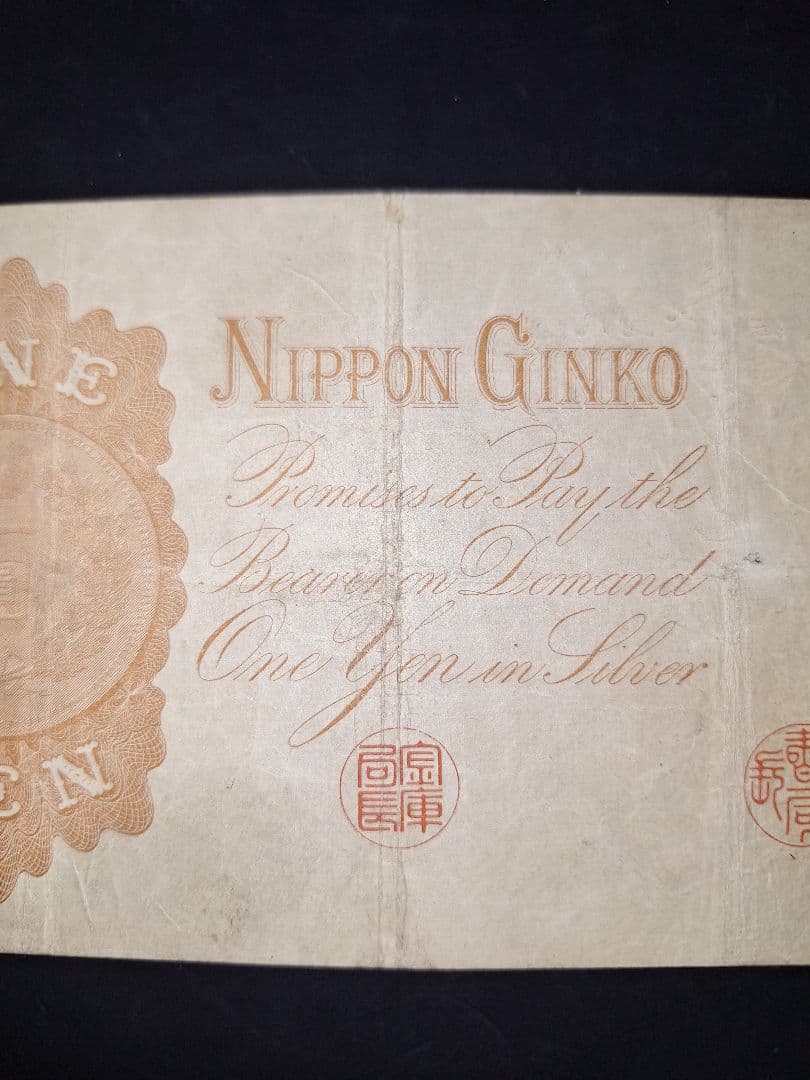 NE
NIPPON GINKO
Promises to Pay the
Bearer on Demand
One Yen in Silver
EN
金庫
局長